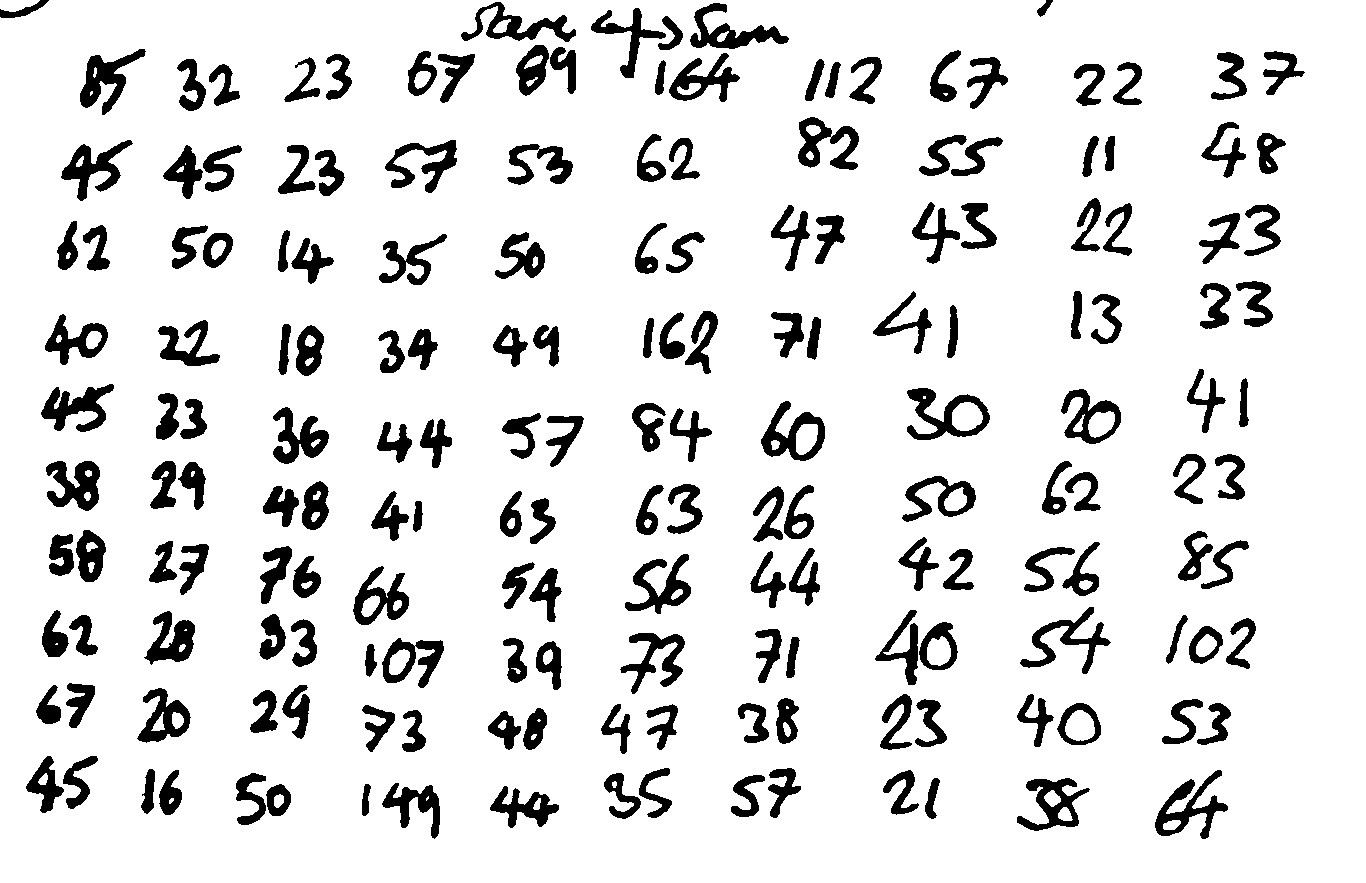 Steve ←|→ Sam
85 32 23 67 89 164 112 67 22 37
45 45 23 57 53 62 82 55 11 48
62 50 14 35 50 65 47 43 22 73
40 22 18 34 49 162 71 41 13 33
45 33 36 44 57 84 60 30 20 41
38 29 48 41 63 63 26 50 62 23
58 27 76 66 54 56 44 42 56 85
62 28 33 107 39 73 71 40 54 102
67 20 29 73 48 47 38 23 40 53
45 16 50 149 44 35 57 21 38 64